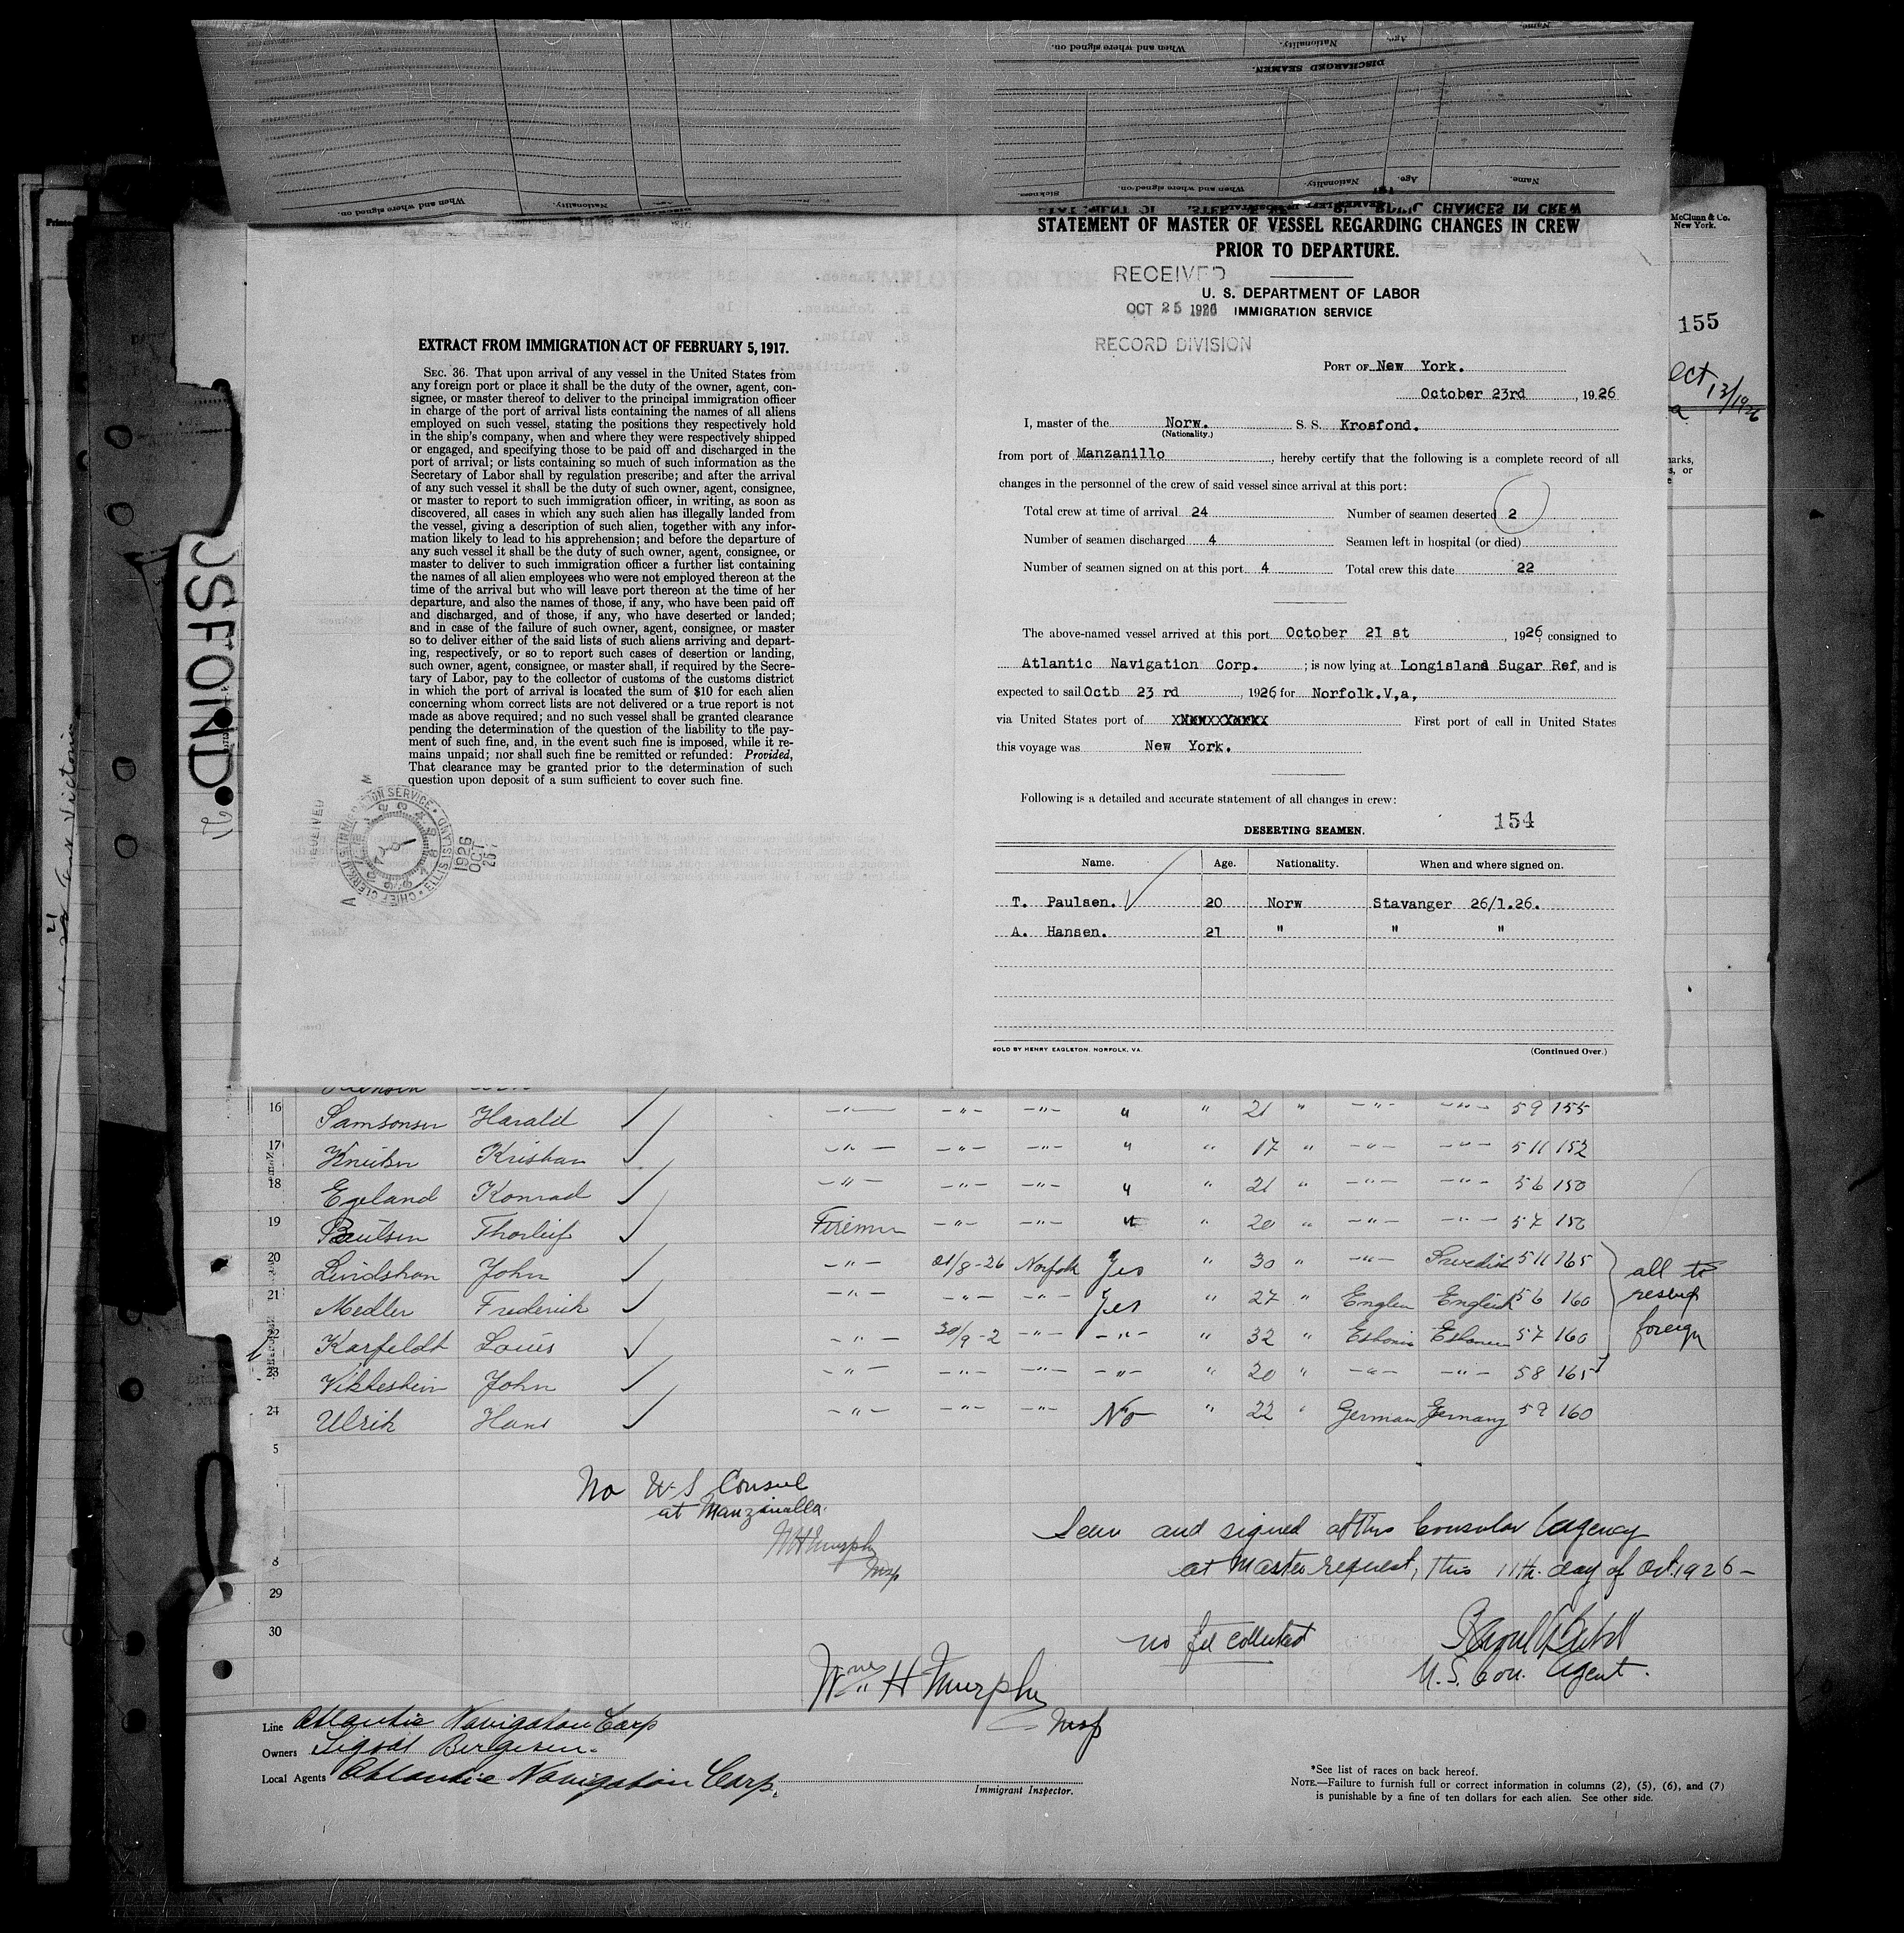 STATEMENT OF MASTER OF VESSEL REGARDING CHANGES IN CREW
PRIOR TO DEPARTURE.
RECEIVED
U. S. DEPARTMENT OF LABOR
OCT 25 1926 IMMIGRATION SERVICE
RECORD DIVISION
PORT OF New York.
October 23rd, 1926
I, master of the Norw. S. S. Krosfond.
(Nationality.)
from port of Manzanillo, hereby certify that the following is a complete record of all
changes in the personnel of the crew of said vessel since arrival at this port:
Total crew at time of arrival 24 Number of seamen deserted 2
Number of seamen discharged 4 Seamen left in hospital (or died)
Number of seamen signed on at this port 4 Total crew this date 22
The above-named vessel arrived at this port October 21 st, 1926, consigned to
Atlantic Navigation Corp. ; is now lying at Longisland Sugar Ref, and is
expected to sail Octb 23 rd, 1926 for Norfolk.V,a,
via United States port of First port of call in United States
this voyage was New York.
Following is a detailed and accurate statement of all changes in crew:
154
DESERTING SEAMEN.
Name. Age. Nationality. When and where signed on.
T. Paulsen. 20 Norw Stavanger 26/1.26.
A. Hansen. 21 " " "
SOLD BY HENRY EAGLETON, NORFOLK, VA. (Continued Over.)
EXTRACT FROM IMMIGRATION ACT OF FEBRUARY 5, 1917.
SEC. 36. That upon arrival of any vessel in the United States from
any foreign port or place it shall be the duty of the owner, agent, con-
signee, or master thereof to deliver to the principal immigration officer
in charge of the port of arrival lists containing the names of all aliens
employed on such vessel, stating the positions they respectively hold
in the ship's company, when and where they were respectively shipped
or engaged, and specifying those to be paid off and discharged in the
port of arrival; or lists containing so much of such information as the
Secretary of Labor shall by regulation prescribe; and after the arrival
of any such vessel it shall be the duty of such owner, agent, consignee,
or master to report to such immigration officer, in writing, as soon as
discovered, all cases in which any such alien has illegally landed from
the vessel, giving a description of such alien, together with any infor-
mation likely to lead to his apprehension; and before the departure of
any such vessel it shall be the duty of such owner, agent, consignee, or
master to deliver to such immigration officer a further list containing
the names of all alien employees who were not employed thereon at the
time of the arrival but who will leave port thereon at the time of her
departure, and also the names of those, if any, who have been paid off
and discharged, and of those, if any, who have deserted or landed;
and in case of the failure of such owner, agent, consignee, or master
so to deliver either of the said lists of such aliens arriving and depart-
ing, respectively, or so to report such cases of desertion or landing,
such owner, agent, consignee, or master shall, if required by the Secre-
tary of Labor, pay to the collector of customs of the customs district
in which the port of arrival is located the sum of $10 for each alien
concerning whom correct lists are not delivered or a true report is not
made as above required; and no such vessel shall be granted clearance
pending the determination of the question of the liability to the pay-
ment of such fine, and, in the event such fine is imposed, while it re-
mains unpaid; nor shall such fine be remitted or refunded: Provided,
That clearance may be granted prior to the determination of such
question upon deposit of a sum sufficient to cover such fine.
CHIEF CLERK U.S. IMMIGRATION SERVICE · ELLIS ISLAND
1926 OCT 25
McClunn & Co.
New York.
155
Oct 13/1926
OSFOND
16 Samsonsen Harald -"- -"- -"- " " 21 " -"- -"- 5 9 155
17 Knutsen Kristian -"- -"- -"- " " 17 " -"- -"- 5 11 152
18 Egeland Konrad -"- -"- -"- " " 21 " -"- -"- 5 6 150
19 Paulsen Thorleif Firemen -"- -"- " " 20 " -"- -"- 5 7 150
20 Lindstrom John -"- 21/8-26 Norfolk Yes " 30 " -"- Swedish 5 11 165
21 Medler Frederick -"- -"- -"- Yes " 27 " English English 5 6 160
22 Karfeldt Louis -"- 30/9-2 -"- -"- " 32 " Estonia Estonian 5 7 160
23 John -"- -"- -"- -"- " 20 " -"- -"- 5 8 165
24 Ulrik Hans -"- -"- -"- No " 22 " German Germany 5 9 160
all to
reship
foreign
5
8
29
30
No U S Consul
at Manzanilla.
WH Murphy
Insp
Seen and signed at this Consular Agency
at Masters request, this 11th day of Oct. 1926-
no fee collected
U. S. Con. Agent.
Wm H Murphy
Insp
Line Atlantic Navigation Corp
Owners Sigval Bergesen.
Local Agents Atlantic Navigation Corp.
Immigrant Inspector.
*See list of races on back hereof.
NOTE.—Failure to furnish full or correct information in columns (2), (5), (6), and (7)
is punishable by a fine of ten dollars for each alien. See other side.